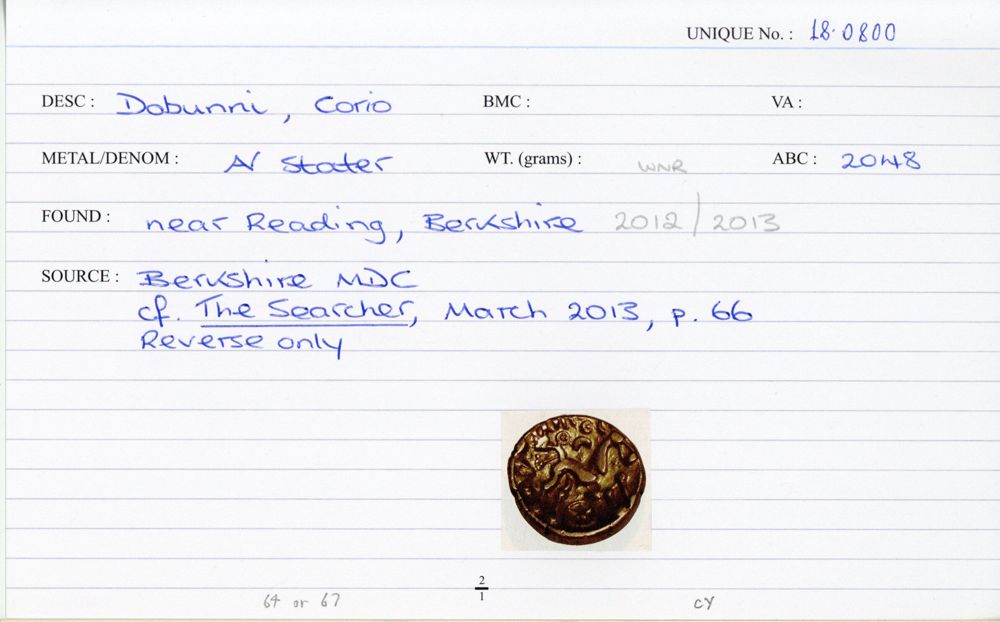 UNIQUE No. : 18.0800
DESC : Dobunni, Corio BMC : VA :
METAL/DENOM : N Stater WT. (grams) : WNR ABC : 2048
FOUND : near Reading, Berkshire 2012/2013
SOURCE : Berkshire MDC
cf. The Searcher, March 2013, p. 66
Reverse only
2
1
64 or 67 CY